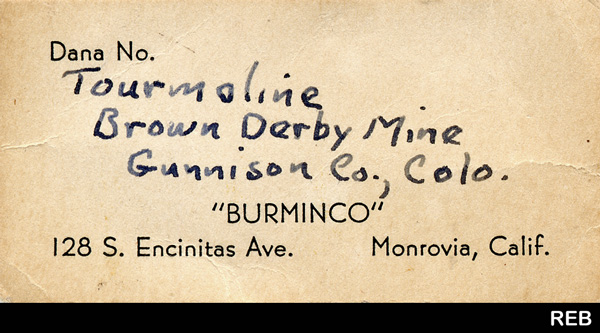 Dana No.
Tourmaline
Brown Derby Mine
Gunnison Co., Colo.
"BURMINCO"
128 S. Encinitas Ave. Monrovia, Calif.
REB